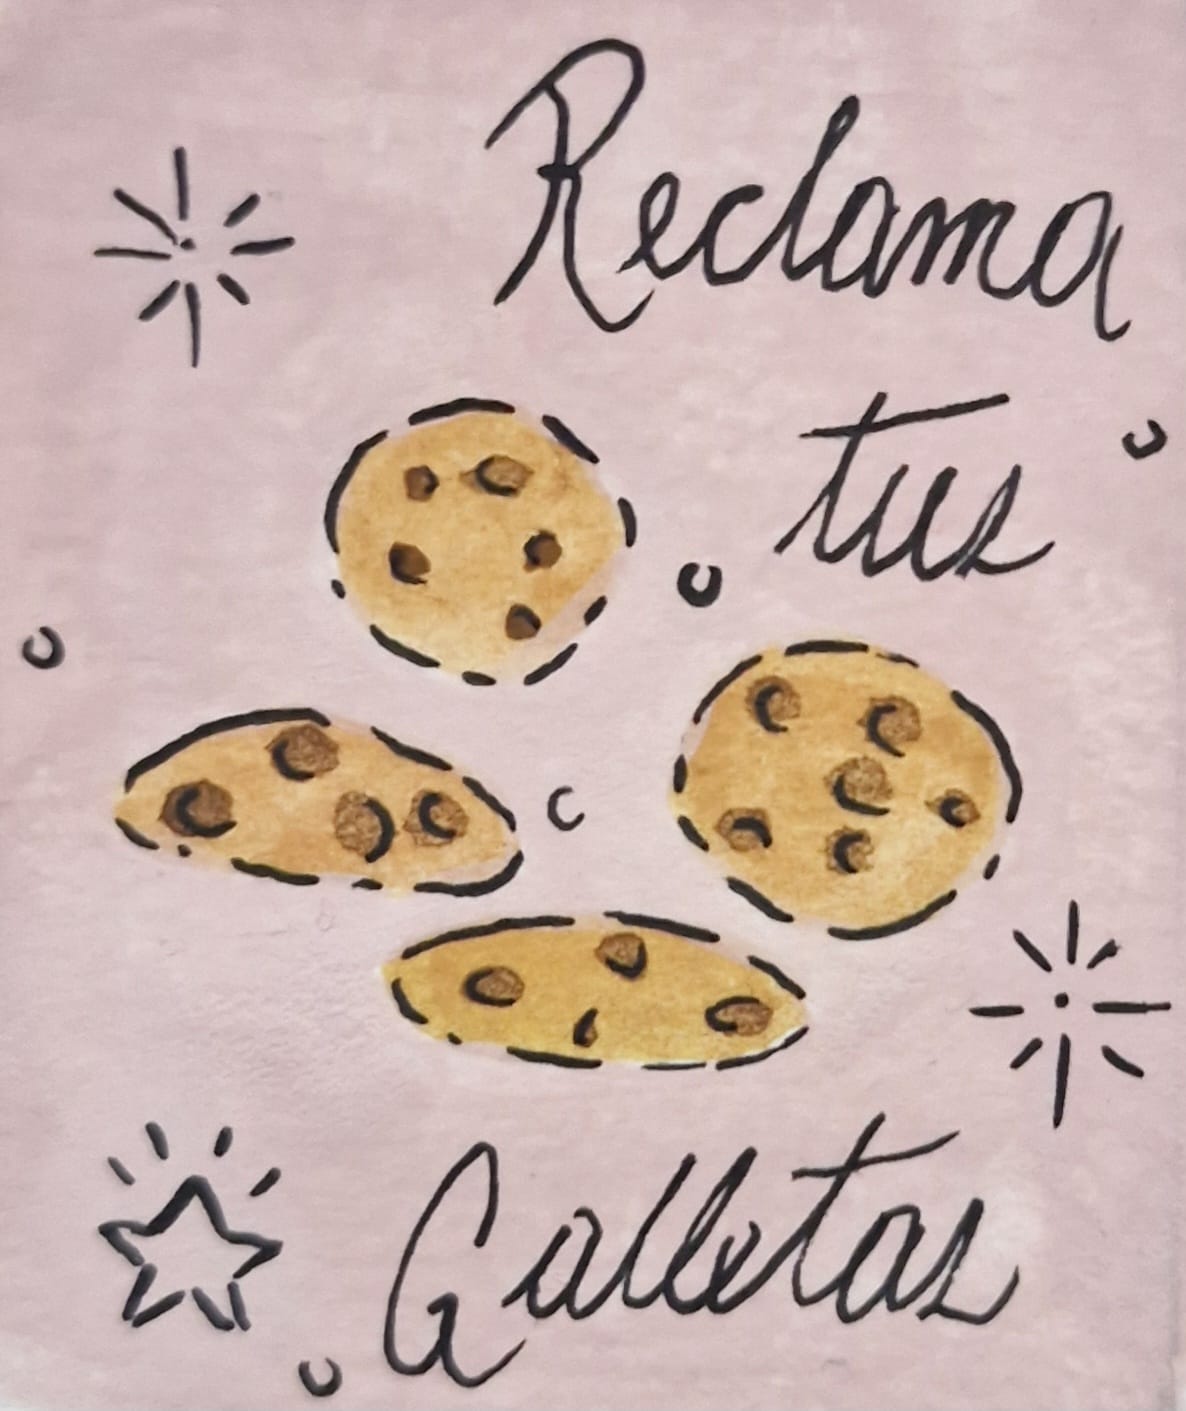 Reclama
tus
Galletas